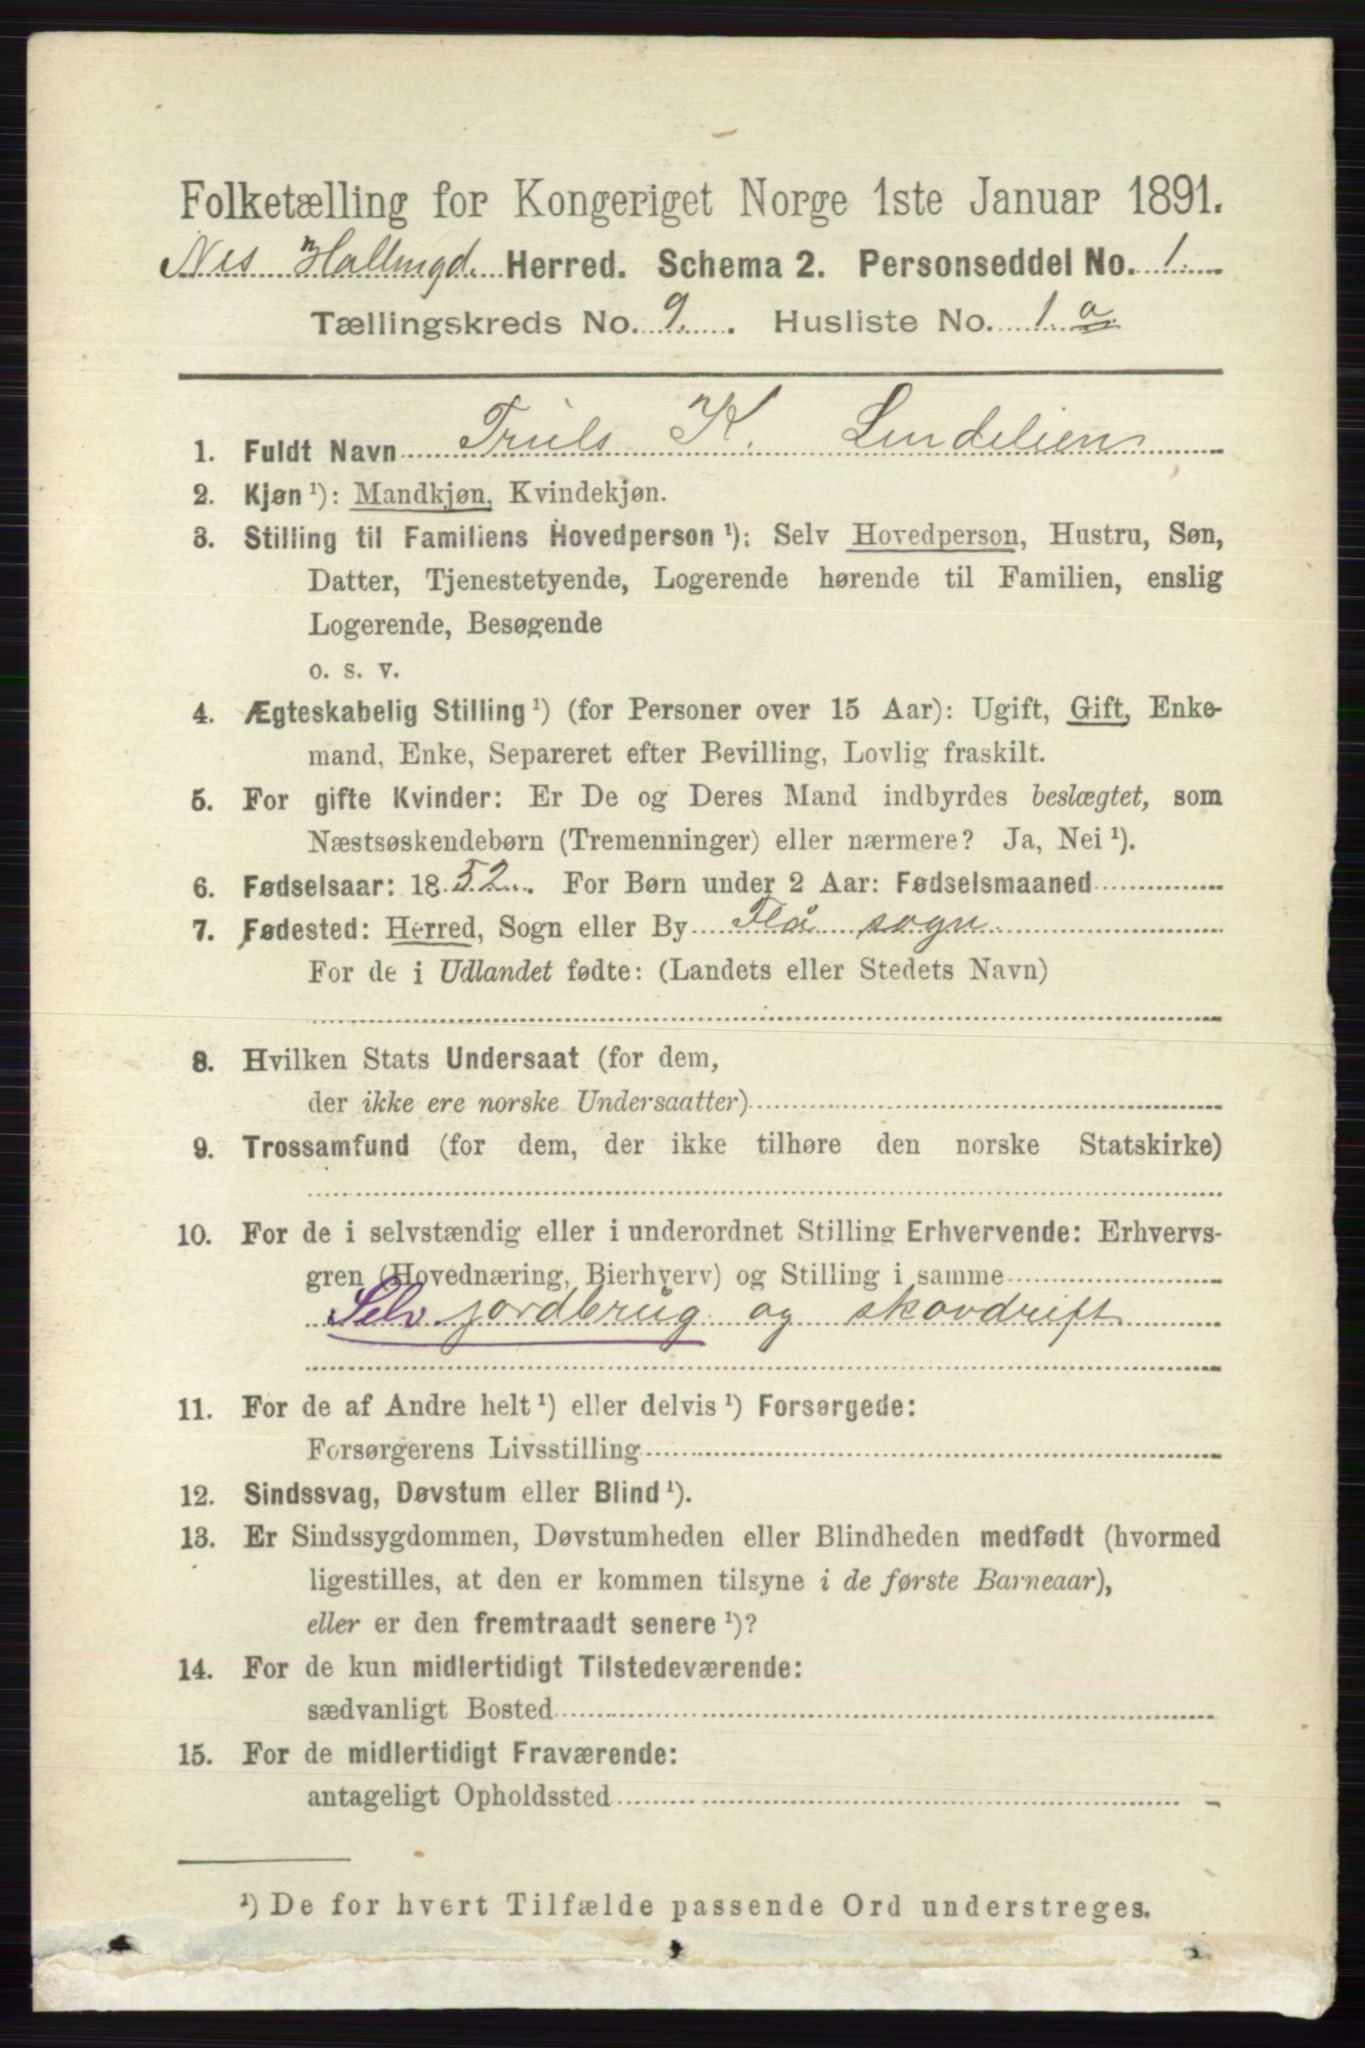 Folketælling for Kongeriget Norge 1ste Januar 1891.
Nes Hallingd. Herred. Schema 2. Personseddel No. 1.
Tællingskreds No. 9. Husliste No. 1 a
1. Fuldt Navn Truls K. Lindelien
2. Kjøn ¹): Mandkjøn, Kvindekjøn.
3. Stilling til Familiens Hovedperson ¹): Selv Hovedperson, Hustru, Søn,
Datter, Tjenestetyende, Logerende hørende til Familien, enslig
Logerende, Besøgende
o. s. v.
4. Ægteskabelig Stilling ¹) (for Personer over 15 Aar): Ugift, Gift, Enke-
mand, Enke, Separeret efter Bevilling, Lovlig fraskilt.
5. For gifte Kvinder: Er De og Deres Mand indbyrdes beslægtet, som
Næstsøskendebørn (Tremenninger) eller nærmere? Ja, Nei ¹).
6. Fødselsaar: 1852. For Børn under 2 Aar: Fødselsmaaned
7. Fødested: Herred, Sogn eller By Flå sogn
For de i Udlandet fødte: (Landets eller Stedets Navn)
8. Hvilken Stats Undersaat (for dem,
der ikke ere norske Undersaatter)
9. Trossamfund (for dem, der ikke tilhøre den norske Statskirke)
10. For de i selvstændig eller i underordnet Stilling Erhvervende: Erhvervs-
gren (Hovednæring, Bierhverv) og Stilling i samme
Selv jordbrug og skovdrift
11. For de af Andre helt ¹) eller delvis ¹) Forsørgede:
Forsørgerens Livsstilling
12. Sindssvag, Døvstum eller Blind ¹).
13. Er Sindssygdommen, Døvstumheden eller Blindheden medfødt (hvormed
ligestilles, at den er kommen tilsyne i de første Barneaar),
eller er den fremtraadt senere ¹)?
14. For de kun midlertidigt Tilstedeværende:
sædvanligt Bosted
15. For de midlertidigt Fraværende:
antageligt Opholdssted
¹) De for hvert Tilfælde passende Ord understreges.